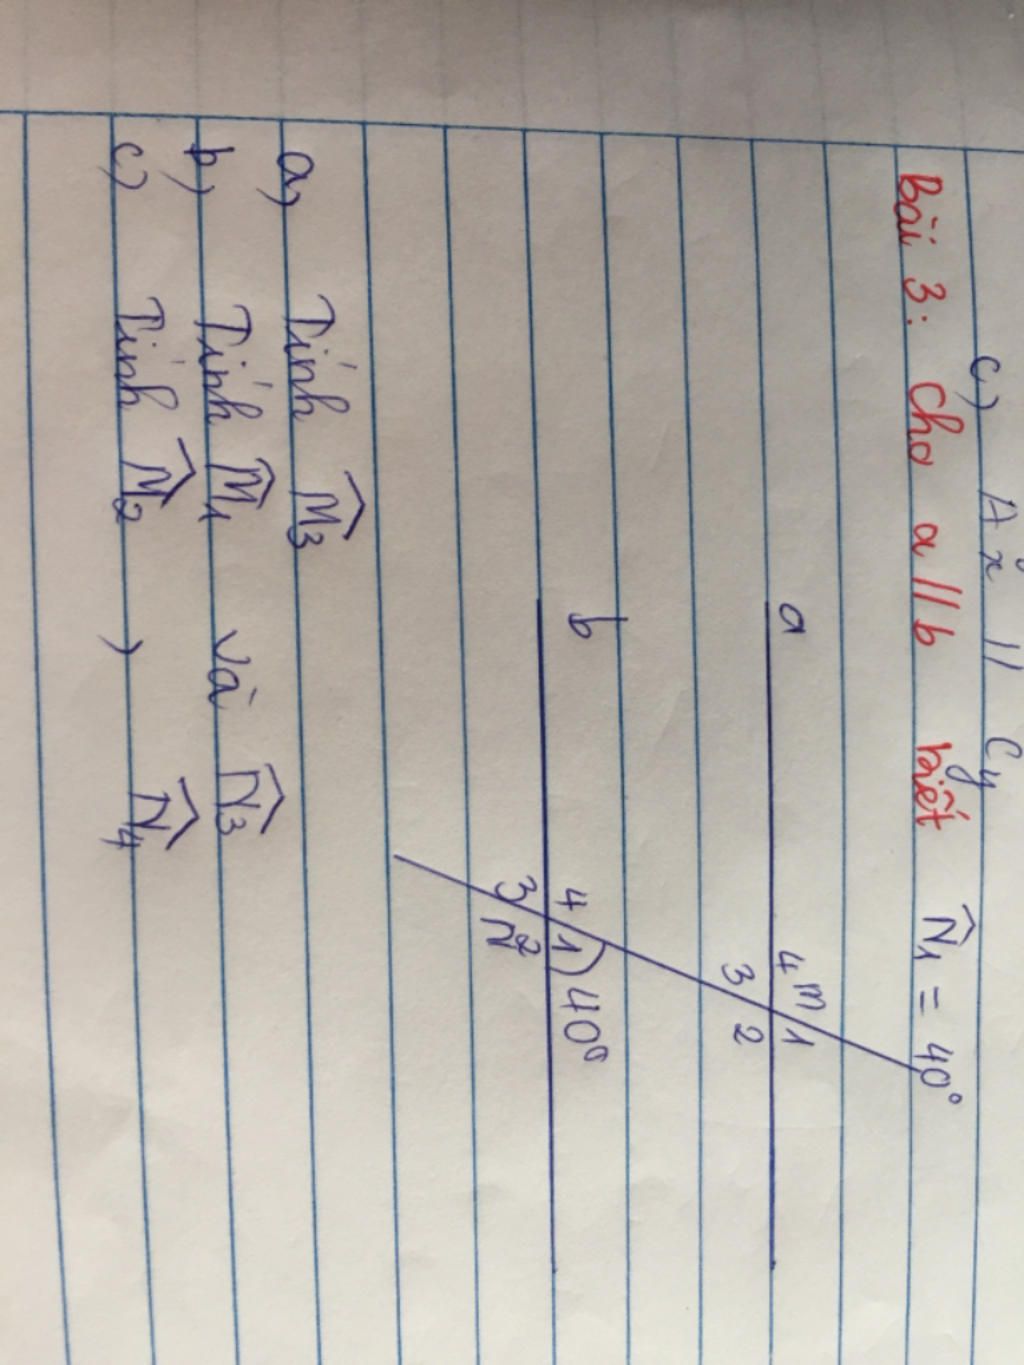 c) Ax // Cy
Bài 3: Cho a // b biết N̂₁ = 40°
a
4 m 1
3 2
b
4 1 40°
3 2
N
a) Tính M̂₃
b) Tính M̂₁ và N̂₃
c) Tính M̂₂ , N̂₄